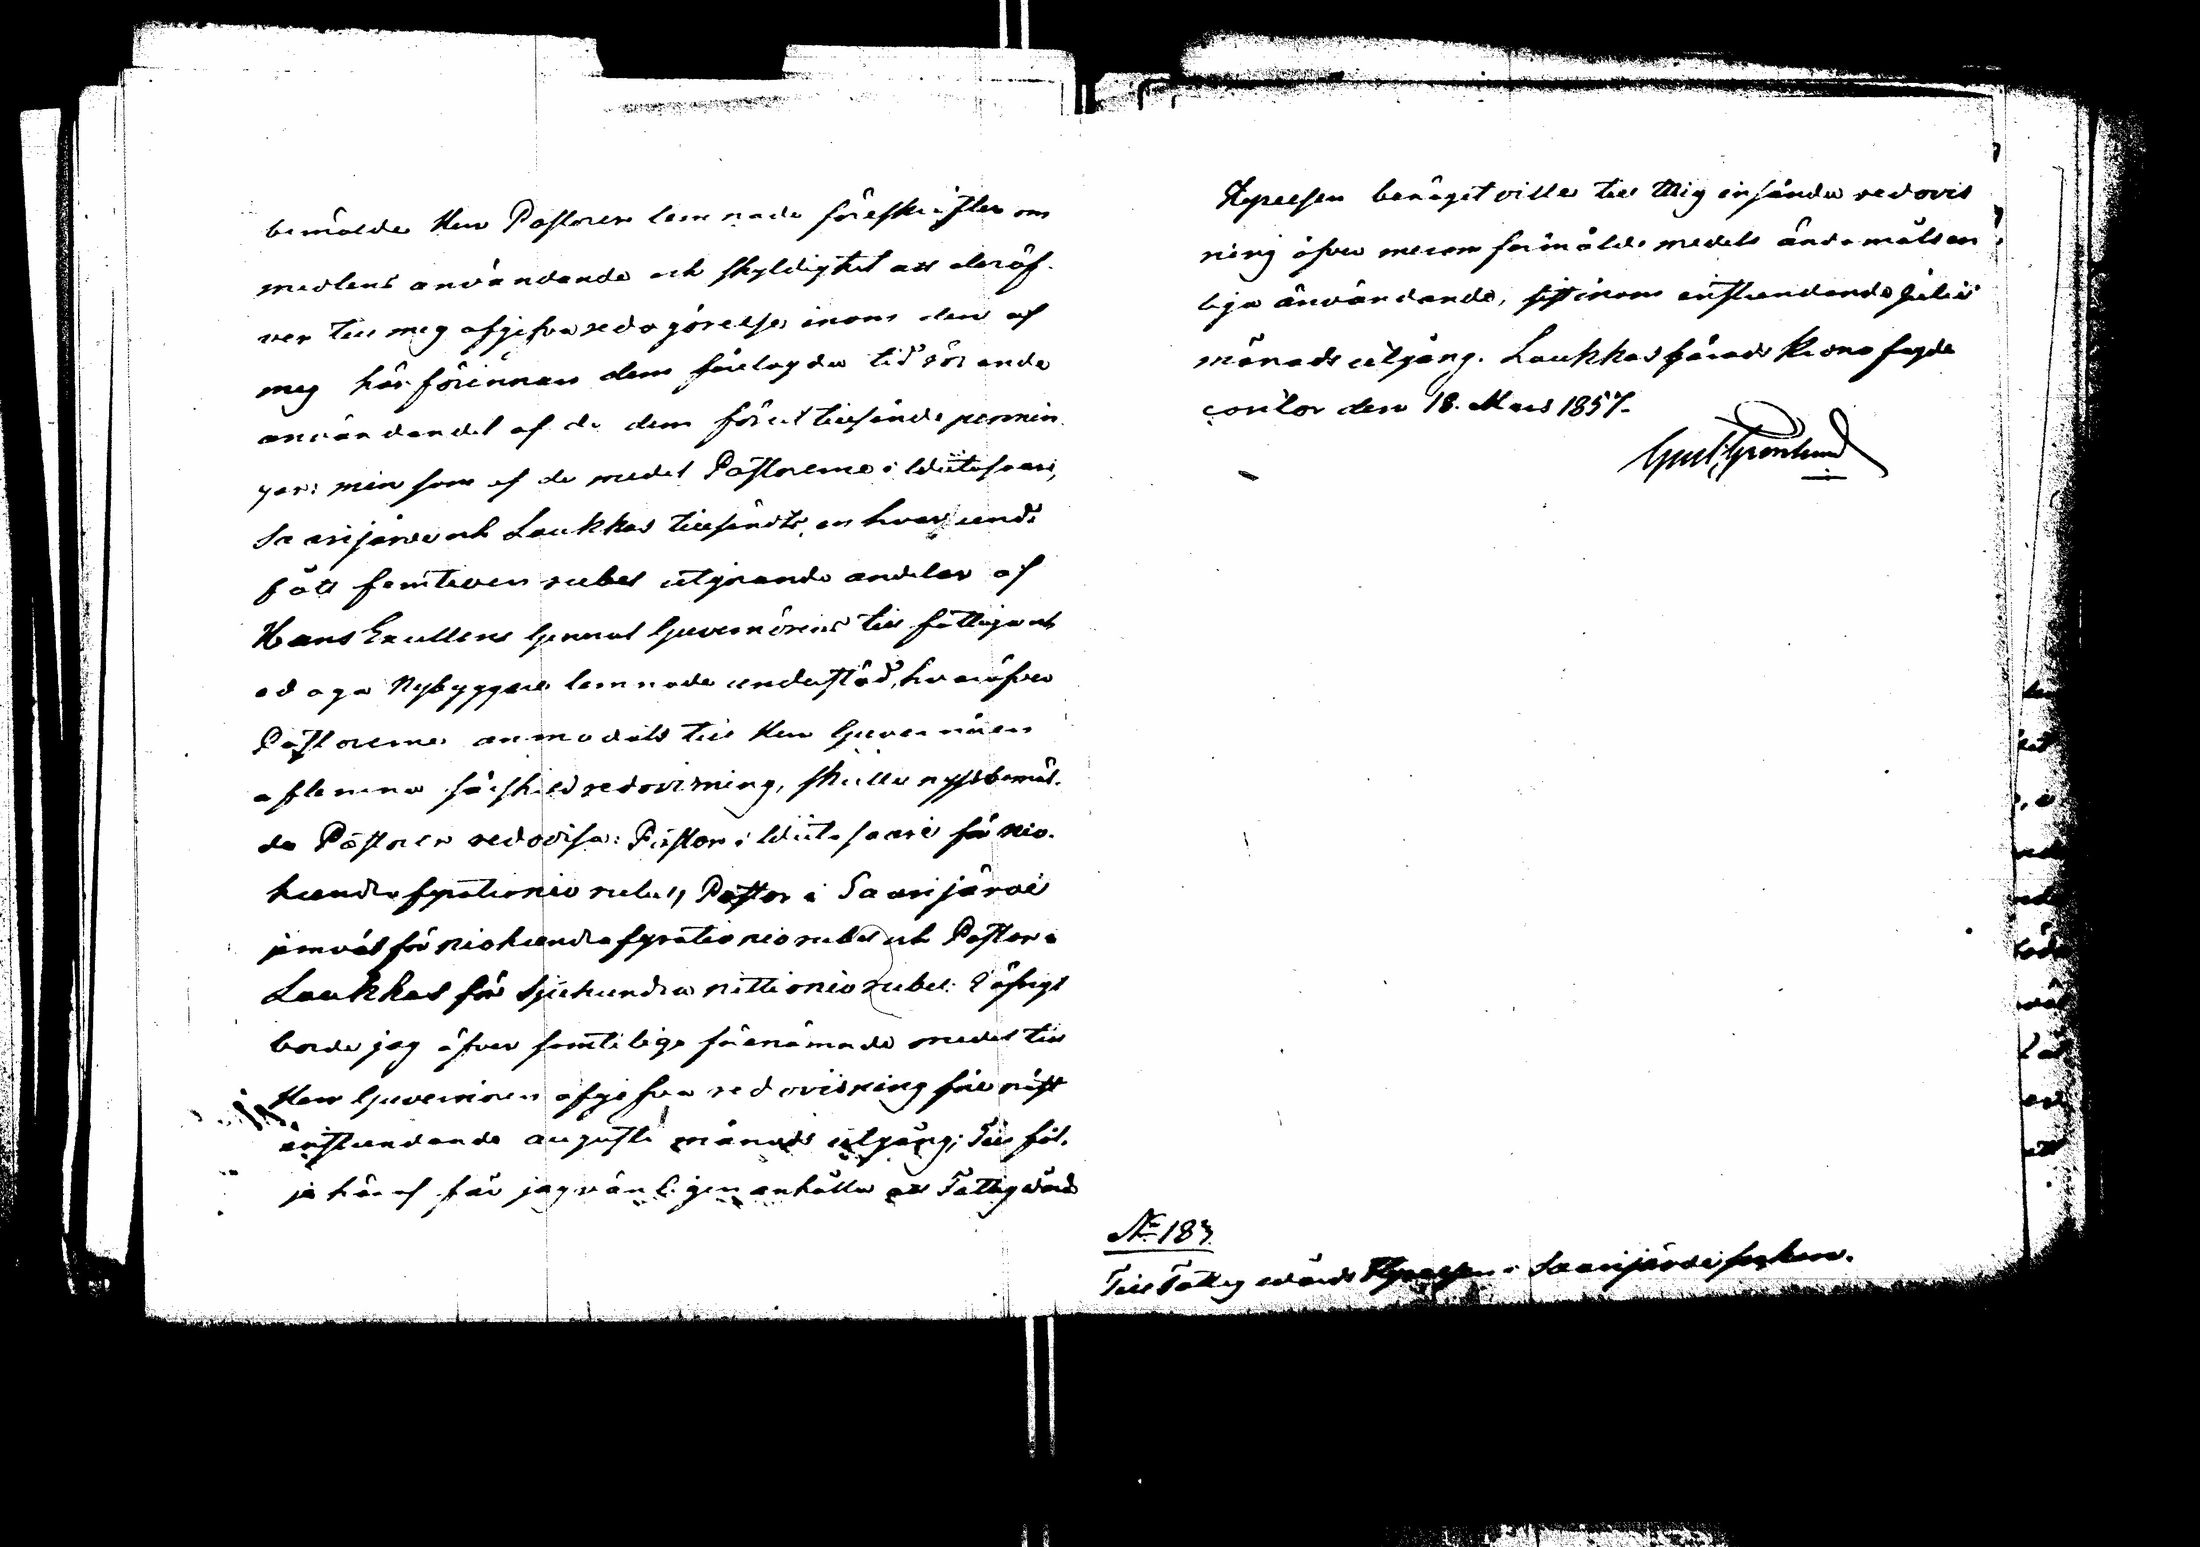 bemälde Herr Pastorer lemnade föreskrifter om
medlens användande och skyldighet att deröf-
ver till mig afgifva redogörelse inom den af
mig här förinnan dem förelagda tid rörande
användandet af de dem förut tillsände pennin-
gar; men som af de medel Pastorerne i Wiitasaari,
Saarijärvi och Laukkas tillsändts, en hvar undf
fått femtioen rubel utgörande andelar af
Hans Excellens General Guvernörens till fattiga och
odaga Nybyggare lemnade understöd, hvaröfver
Pastorerne anmodats till Herr Guvernören
aflemna särskild redovisning, skulle nyssbemäl-
da Pastorer redovisa: Pastor i Wiitasaari för nio-
hundra fyrationio rubel, Pastor i Saarijärvi
jemväl för niohundra fyrationio rubel och Pastor i
Laukkas för sjuhundra nittionio rubel. I öfrigt
borde jag öfver samtelige förenämnde medel till
Herr Guvernören afgifva redovisning före näst
instundande augusti månads utgång; Till föl-
je häraf får jag vänligen anhålla att Fattigvårds
Styrelsen benäget ville till Mig insända redovis
ning öfver merom förmälde medels ändamålsen
liga användande, sist inom instundande Julii
månads utgång. Laukkas härads Kronofogde
contor den 18. Mars 1857.
Gust. Grönlund
No 183.
Till Fattigvårds Styrelsen i Saarijärvi socken.